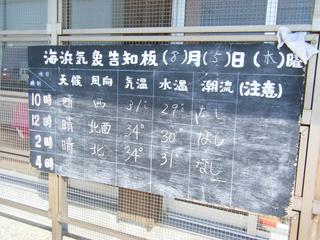 海浜気象告知板 (8)月(5)日(水)曜
天候 風向 気温 水温 潮流 (注意)
10時 晴 西 31° 29° なし
12時 晴 北西 34° 30° なし
2時 晴 北 34° 31° なし
4時